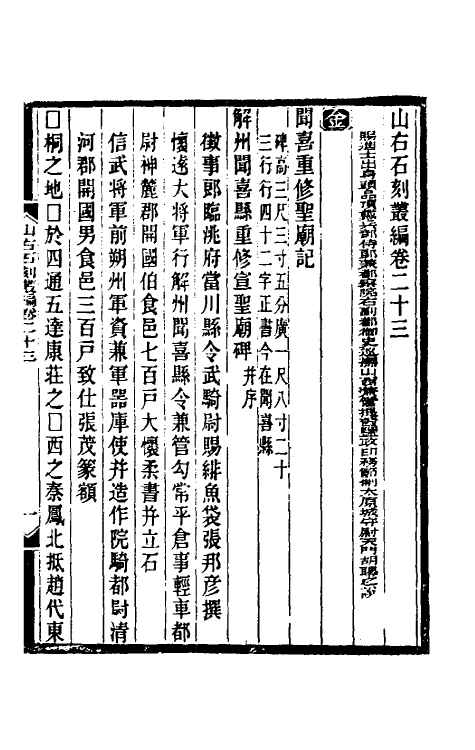 山右石刻叢編卷二十三
賜進士出身頭品頂戴兵部侍郎兼都察院右副都御史巡撫山西兼管提督鹽政印務節制太原城守尉天門胡聘之
金
聞喜重修聖廟記
碑高三尺三寸五分廣一尺八寸二十
三行行四十二字正書今在聞喜縣
解州聞喜縣重修宣聖廟碑 并序
徵事郎臨洮府當川縣令武騎尉賜緋魚袋張邦彥撰
懷遠大將軍行解州聞喜縣令兼管勾常平倉事輕車都
尉神麓郡開國伯食邑七百戸大懷柔書并立石
信武將軍前朔州軍資兼軍器庫使并造作院騎都尉清
河郡開國男食邑三百戸致仕張茂篆額
□桐之地□於四通五達康莊之□西之秦鳳北抵趙代東
山右石刻叢編卷二十三
一